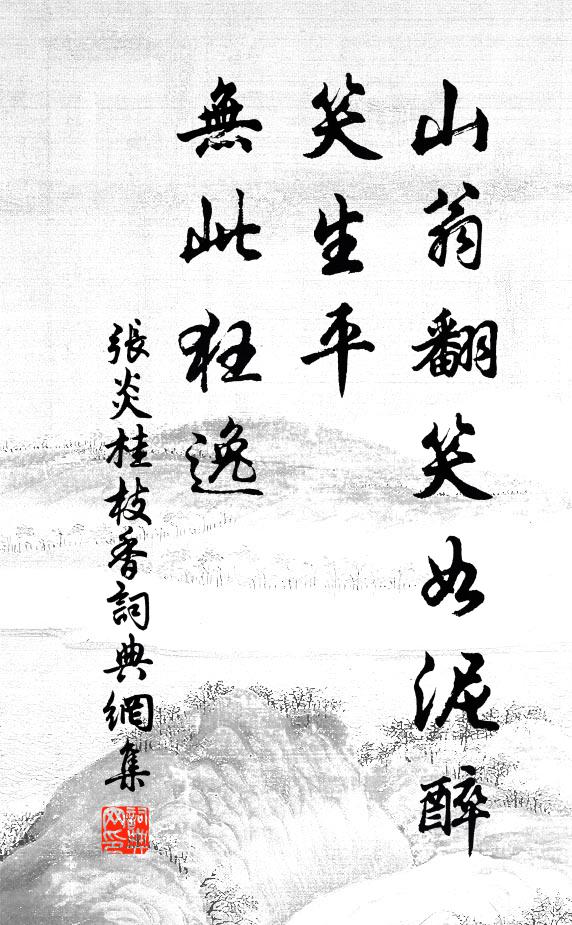 山翁翻笑如泥醉
笑生平
無此狂逸
張炎桂枝香詞典網集